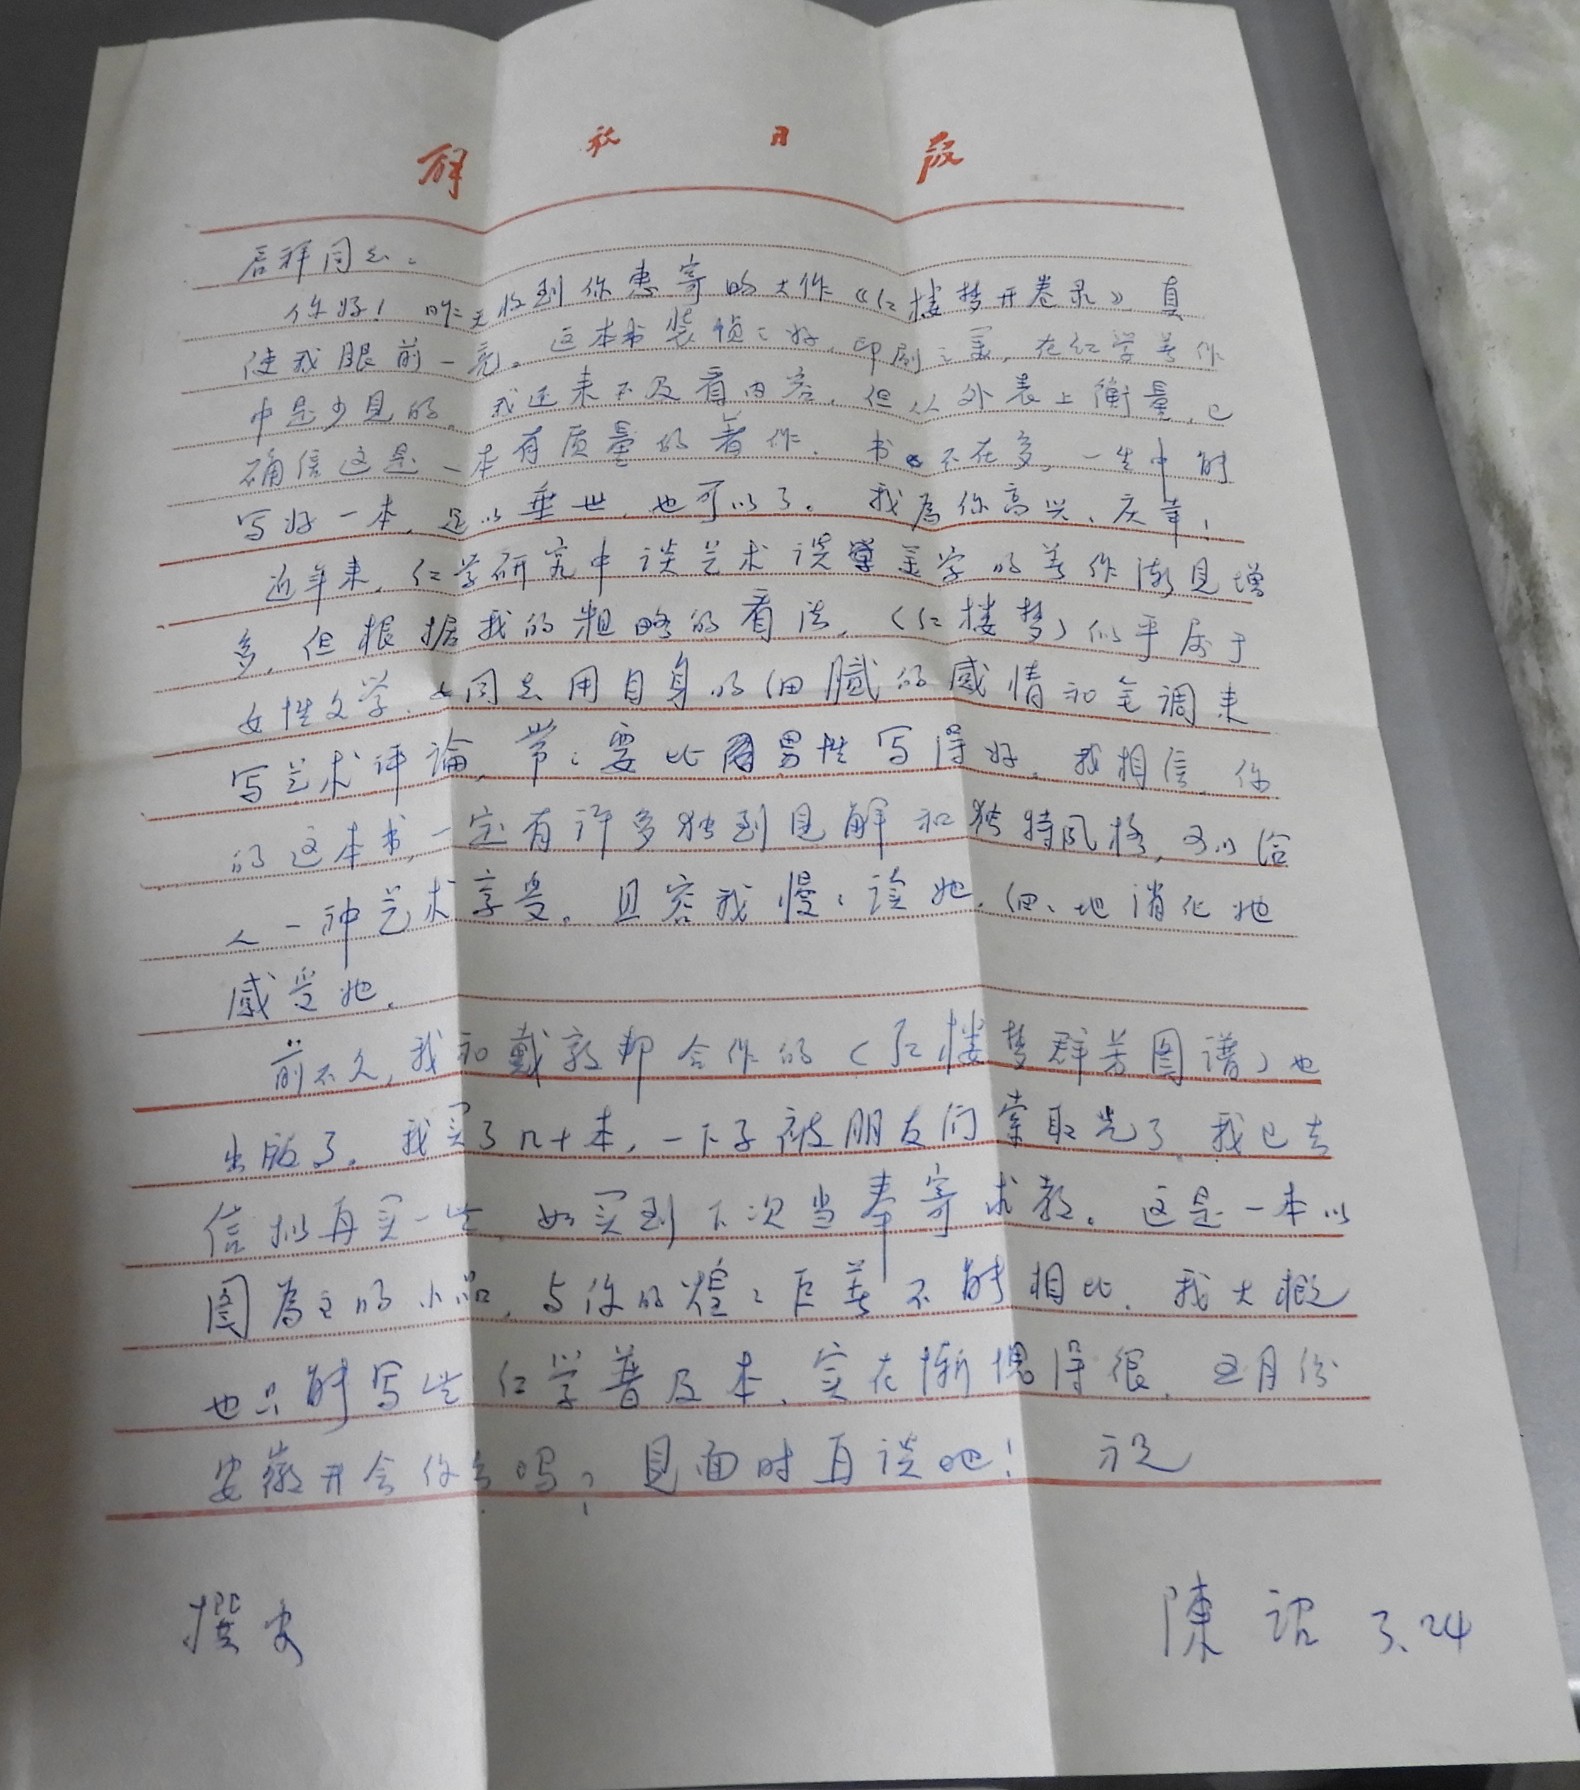 解放日报
启祥同志：
你好！昨天收到你惠寄的大作《红楼梦开卷录》，真
使我眼前一亮。这本书装帧之好，印刷之美，在红学著作
中是少见的。我还来不及看内容，但从外表上衡量，已
确信这是一本有质量的著作。书不在多，一生中能
写好一本，足以垂世，也可以了。我為你高兴、庆幸！
近年来，红学研究中谈艺术谈美学的著作渐见增
多，但根据我的粗略的看法，《红楼梦》似乎属于
女性文学，女同志用自身的细腻的感情和笔调来
写艺术评論，常々要比男性写得好。我相信，你
的这本书，一定有许多独到见解和独特风格，可以给
人一种艺术享受。且容我慢々读她，细々地消化她
感受她。
前不久，我和戴敦邦合作的《红楼梦群芳图谱》也
出版了。我买了几十本，一下子被朋友们索取光了，我已去
信拟再买一些，如买到下次当奉寄求教。这是一本以
圖為主的小品，与你的煌々巨著不能相比。我大概
也只能写些红学普及本，实在惭愧得很。五月份
安徽开会你去吗？见面时再谈吧！ 祝
撰安
陳詔 3.24